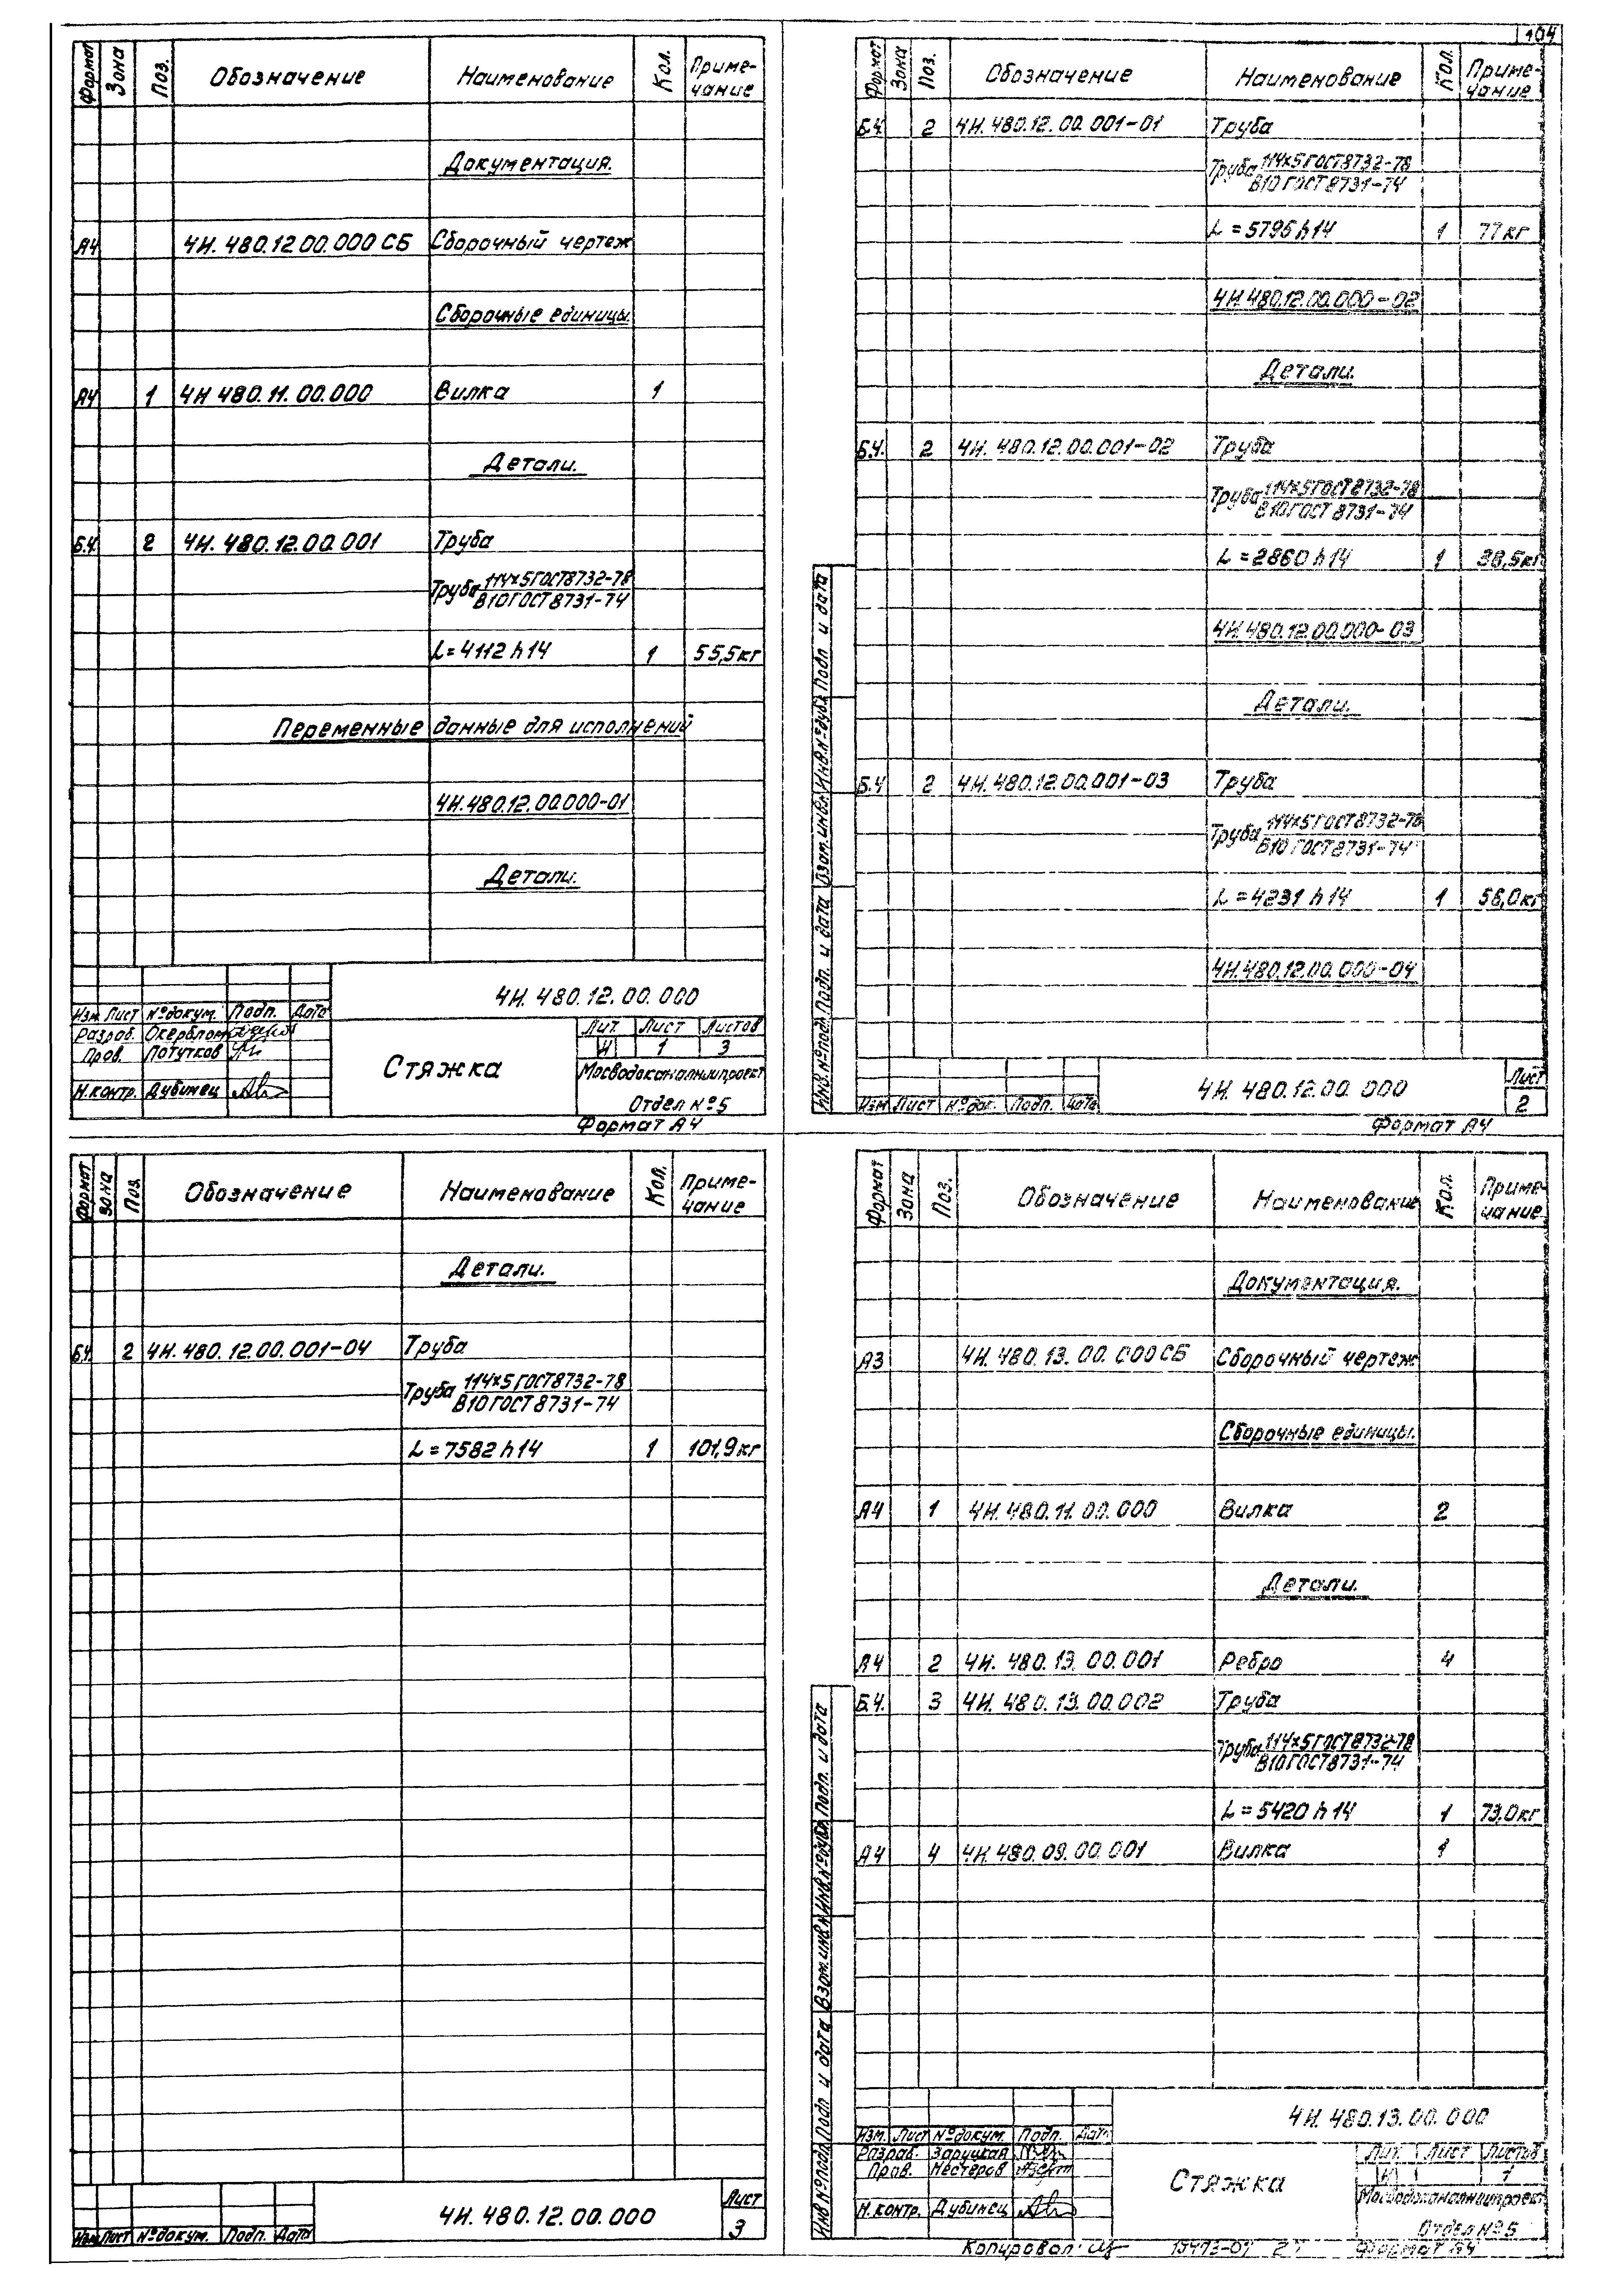 104
Формат Зона Поз. Обозначение Наименование Кол. Приме-
чание
Документация.
А4 4И. 480.12.00.000 СБ Сборочный чертеж
Сборочные единицы.
А4 1 4И 480.11.00.000 Вилка 1
Детали.
Б.4. 2 4И. 480.12.00.001 Труба
Труба 114×5 ГОСТ 8732-78
В10 ГОСТ 8731-74
L = 4112 h14 1 55,5кг
Переменные данные для исполнений
4И.480.12.00.000-01
Детали.
4И. 480.12.00.000
Изм Лист №докум. Подп. Дата
Разраб. Окерблом
Пров. Потутков
Н.контр. Дубинец
Стяжка
Лит Лист Листов
И 1 3
Мосводоканалниипроект
Отдел №5
Формат А4
Формат Зона Поз. Обозначение Наименование Кол. Приме-
чание
Б.4. 2 4И. 480.12.00.001-01 Труба
Труба 114×5 ГОСТ 8732-78
В10 ГОСТ 8731-74
L = 5795 h14 1 77кг
4И.480.12.00.000-02
Детали.
Б.4. 2 4И. 480.12.00.001-02 Труба
Труба 114×5 ГОСТ 8732-78
В10 ГОСТ 8731-74
L = 2860 h14 1 38,5кг
4И.480.12.00.000-03
Детали.
Б.4 2 4И. 480.12.00.001-03 Труба
Труба 114×5 ГОСТ 8732-78
В10 ГОСТ 8731-74
L = 4231 h14 1 56,0кг
4И.480.12.00.000-04
Инв.№подл. Подп. и дата Взам.инв.№ Инв.№дубл. Подп и дата
Изм Лист №док. Подп. Дата
4И. 480.12.00.000
Лист
2
Формат А4
Формат Зона Поз. Обозначение Наименование Кол. Приме-
чание
Детали.
Б.4. 2 4И. 480.12.00.001-04 Труба
Труба 114×5 ГОСТ 8732-78
В10 ГОСТ 8731-74
L = 7582 h14 1 101,9кг
Изм Лист №докум. Подп. Дата
4И. 480.12.00.000
Лист
3
Формат Зона Поз. Обозначение Наименование Кол. Приме-
чание
Документация.
А3 4И. 480.13.00.000 СБ Сборочный чертеж
Сборочные единицы.
А4 1 4И. 480.11.00.000 Вилка 2
Детали.
А4 2 4И. 480.13.00.001 Ребро 4
Б.4. 3 4И. 480.13.00.002 Труба
Труба 114×5 ГОСТ 8732-78
В10 ГОСТ 8731-74
L = 5420 h14 1 73,0кг
А4 4 4И. 480.09.00.001 Вилка 1
Инв №подл. Подп и дата Взам.инв.№ Инв.№дубл. Подп. и дата
4И. 480.13.00.000
Изм. Лист №докум. Подп. Дата
Разраб. Заруцкая
Пров. Нестеров
Н.контр. Дубинец
Стяжка
Лит. Лист Листов
И 1
Мосводоканалниипроект
Отдел №5
Копировал: Формат А4